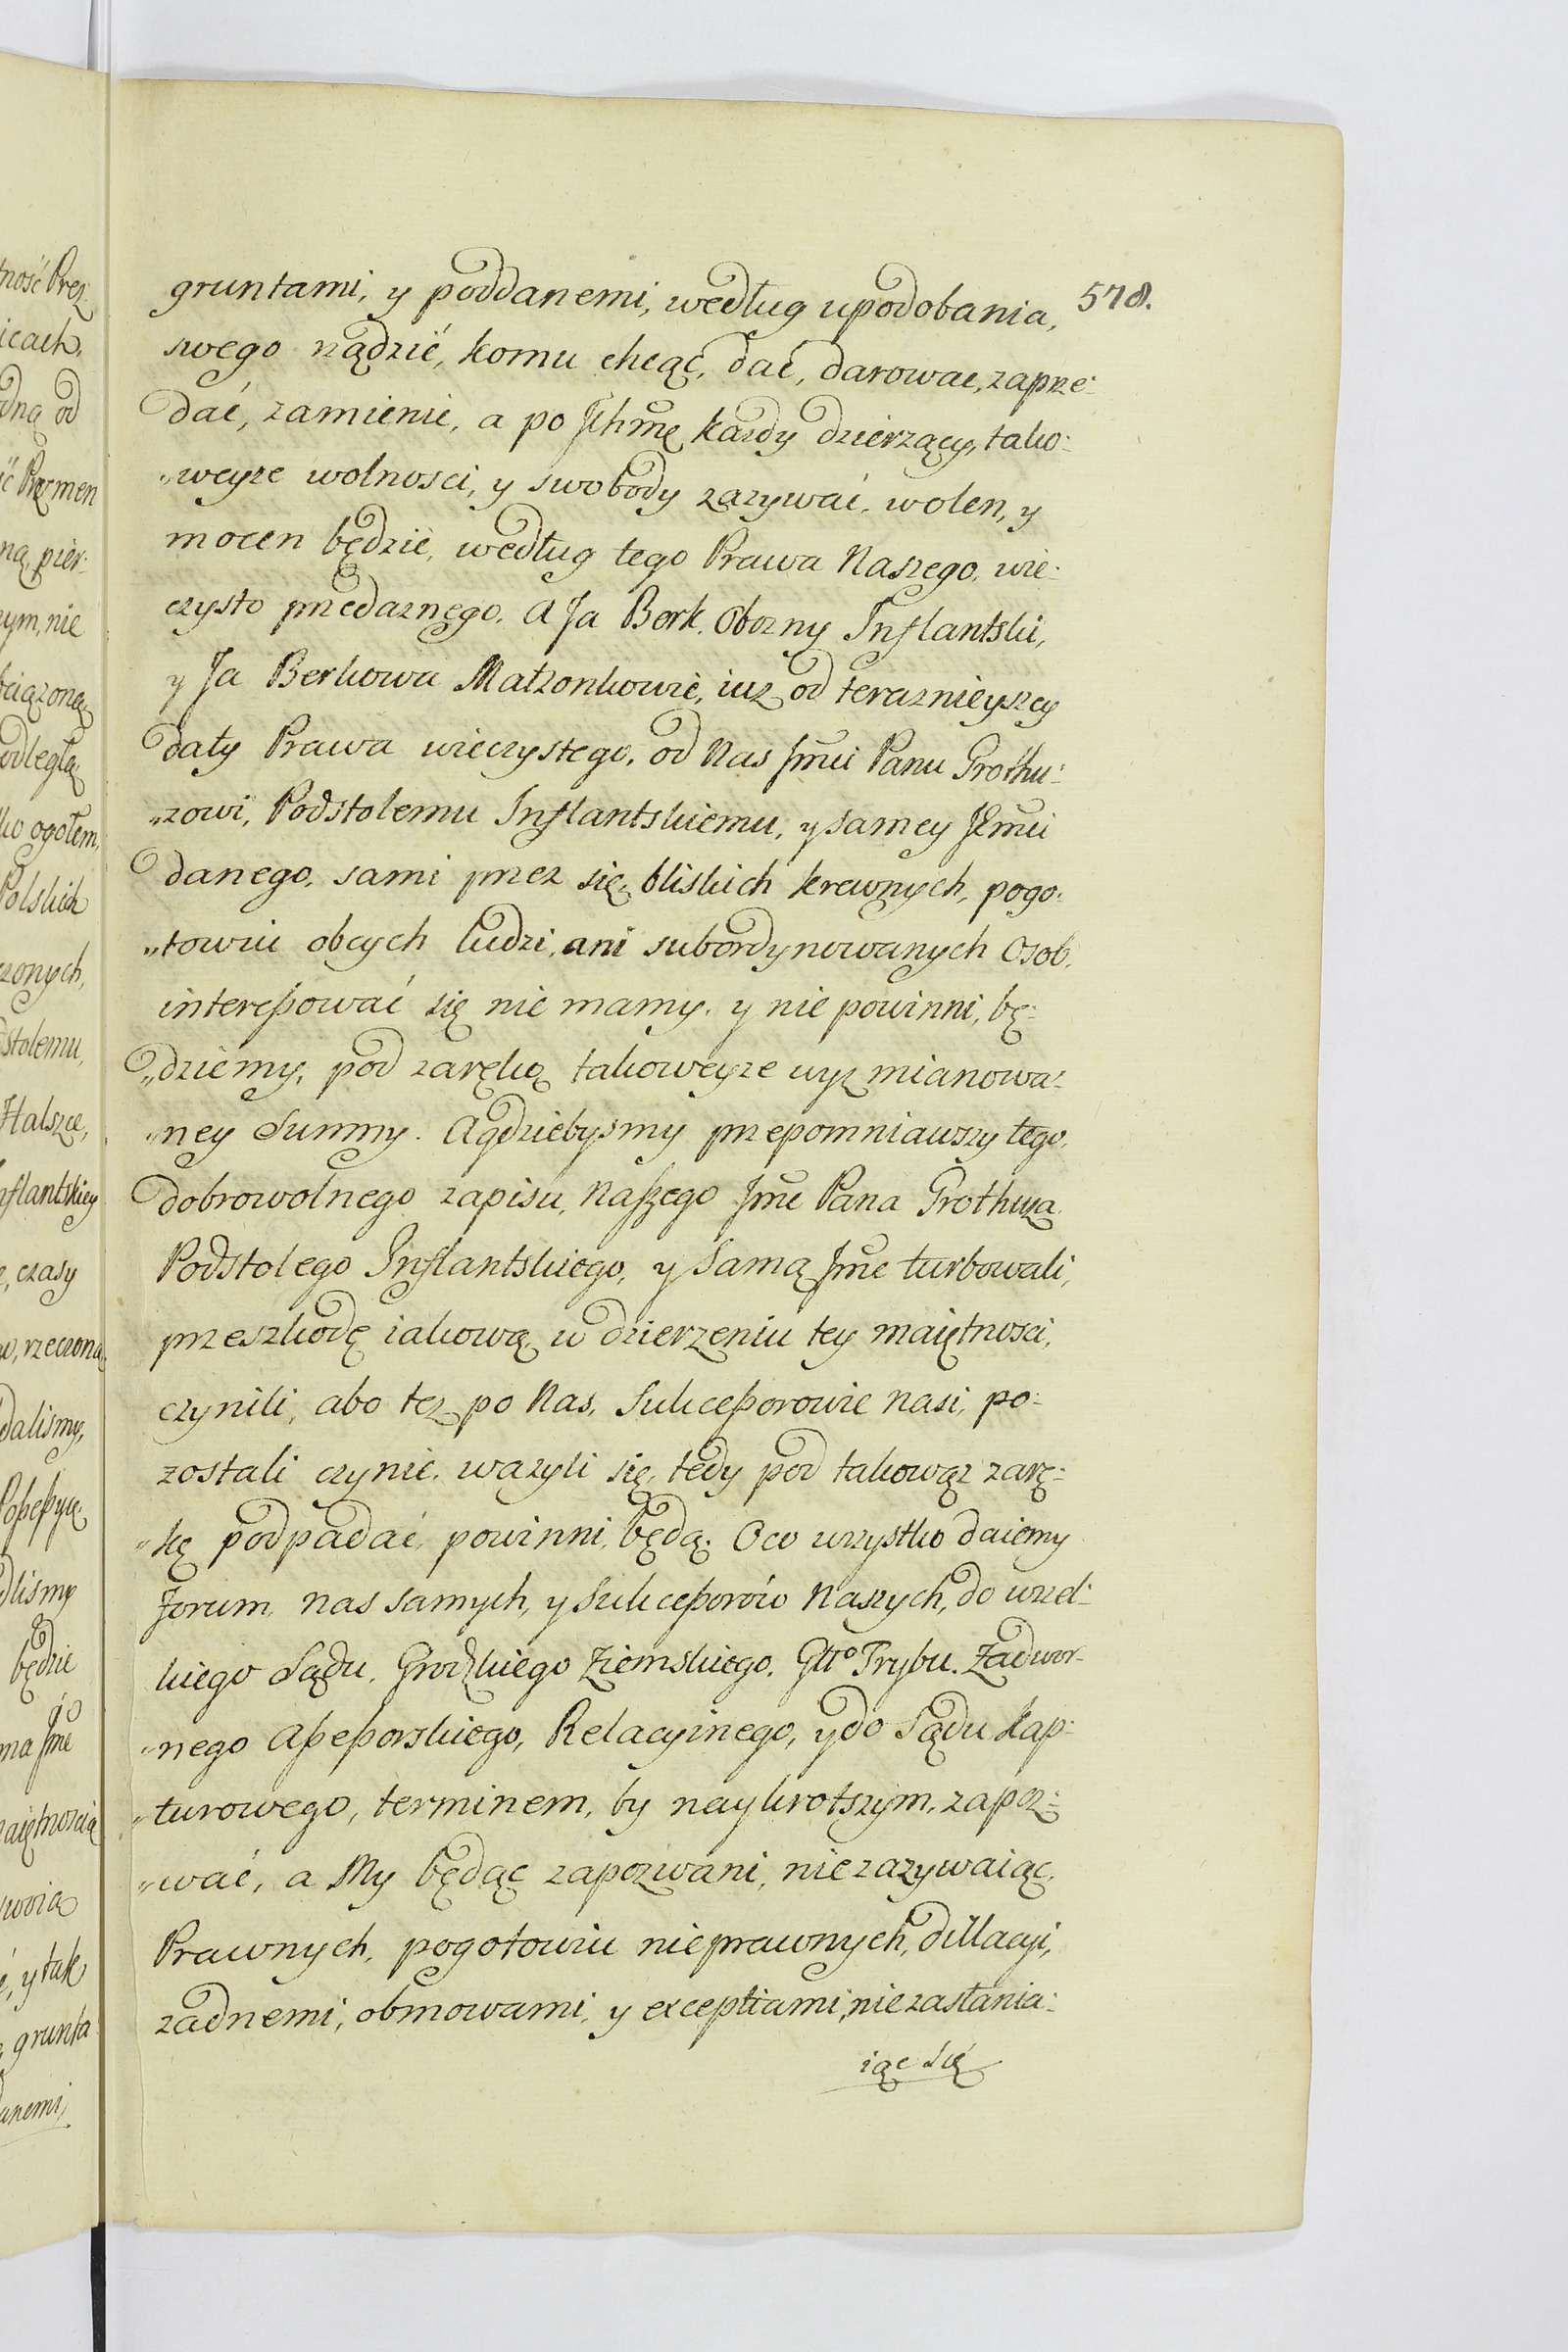 578.
gruntami, y poddanemi, według upodobania,
swego rządzić, komu chcąc, dać, darować, zaprze-
dać, zamienić, a po Ichmę każdy dzierzący, tako-
„weyze wolnosci, y swobody zazywać, wolen, y
mocen będzie, według tego Prawa Naszego, wie-
czysto przedaznego. A Ja Bork. Obozny Inflantski,
y Ja Berkowa Małzonkowie, iuz od teraznieyszey
daty Prawa wieczystego, od Nas Jmći Panu Grothu-
„zowi, Podstolemu Inflantskiemu, y samey Jeymći
danego, sami przez się, bliskich krewnych, pogo-
„towiu obcych ludzi, ani subordynowanych Osob,
intereßować się nie mamy, y nie powinni, bę-
„dziemy, pod zaręką takoweyze wyz mianowa-
„ney Summy. A gdziebysmy przepomniawszy tego,
dobrowolnego zapisu, Naszego Jme Pana Grothuza
Podstolego Inflantskiego, y Samą Jme turbowali,
przeszkodę iakową, w dzierzeniu tey maiętnosci,
czynili, abo tez po Nas, Sukceßorowie nasi, po-
zostali czynić, wazyli się, tedy pod takowąz zarę-
„kę podpadać, powinni, będą. O co wszystko daiemy
Forum, nas samych, y Sukceßorów Naszych, do wszel-
kiego Sądu, Grodzkiego Ziemskiego, Głło Trybu. Zadwor-
„nego Aßeßorskiego, Relacyinego, y do Sądu Kap-
„turowego, terminem, by naykrotszym, zapoz-
„wać, a My będąc zapozwani, nie zazywaiąc,
Prawnych, pogotowiu nieprawnych, dillacyi,
zadnemi, obmowami, y exceptiami, nie zasłania-
iąc się